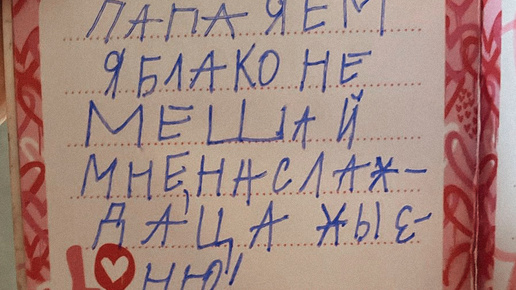 ПАПА Я ЕМ
ЯБЛАКО НЕ
МЕШАЙ
МНЕ, НАСЛАЖ-
ДАЦА ЖЫЗ-
НЮ!